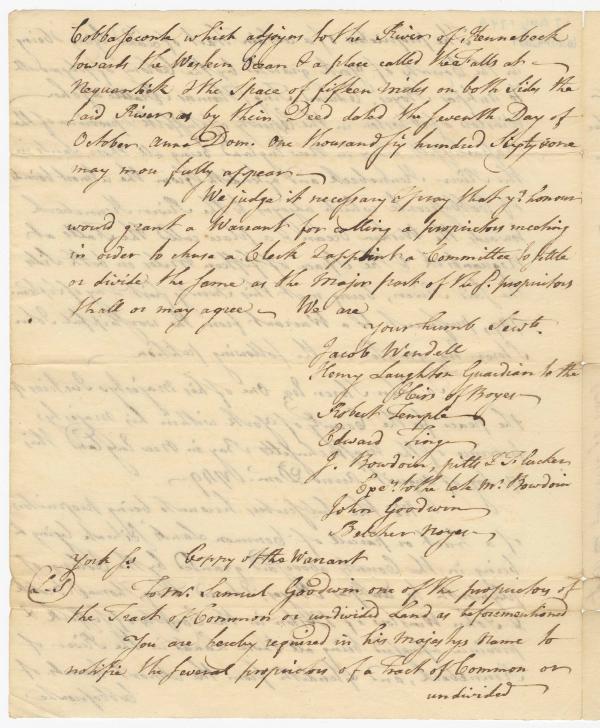 Cobbaseconte which adjoyns to the River of Kennebeck
towards the Western Ocean & a place called the Falls at
Nequamkick & the Space of fifteen miles on both Sides the
said River as by their Deed dated the Seventh Day of
October Anno Dom. One thousand six hundred Sixty & one
may more fully appear
We judge it necessary & pray that yr. honour
would grant a Warrant for calling a proprietors meeting
in order to chuse a Clerk & appoint a Committee to settle
or divide the same as the Major part of the sd. proprietors
shall or may agree We are
Your humb Servts.
Jacob Wendell
Henry Laughton Guardian to the
Heirs of Boyes
Robert Temple
Edward Ting
J. Bowdoin, pitts & Flucker
Exec. to the late Mr. Bowdoin
John Goodwin
Belcher Noyes
York Ss. Coppy of the Warrant
LS To Mr. Samuel Goodwin one of the proprietors of
the Tract of Common or undivided Land as beforementioned
You are hereby required in his Majestys name to
notifie the several proprietors of a Tract of Common or
undivided